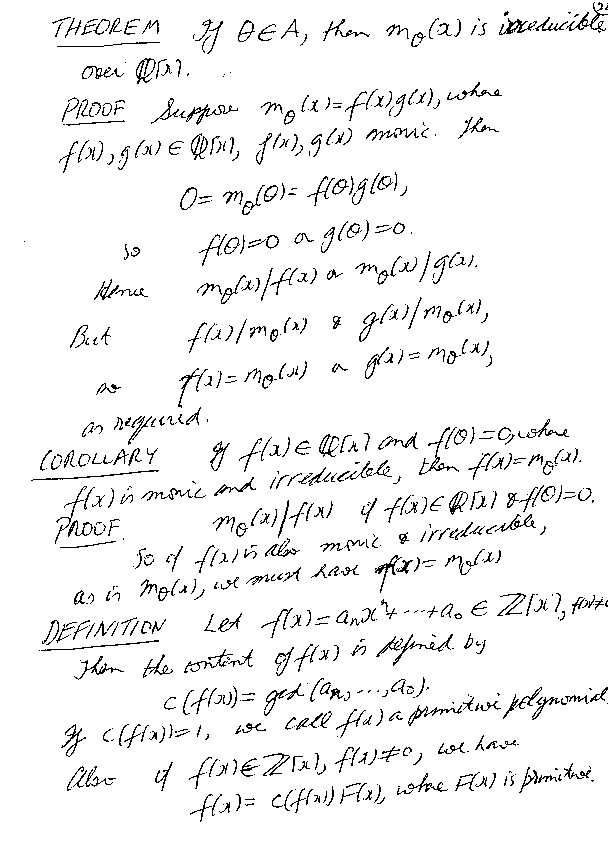 THEOREM If θ∈A, then m_θ(x) is irreducible
over ℚ[x].
PROOF Suppose m_θ(x)=f(x)g(x), where
f(x), g(x) ∈ ℚ[x], f(x), g(x) monic. Then
0= m_θ(θ)= f(θ)g(θ),
so f(θ)=0 or g(θ)=0.
Hence m_θ(x)/f(x) or m_θ(x)/g(x).
But f(x)/m_θ(x) & g(x)/m_θ(x),
so f(x)=m_θ(x) or g(x)=m_θ(x),
as required.
COROLLARY If f(x)∈ℚ[x] and f(θ)=0, where
f(x) is monic and irreducible, then f(x)=m_θ(x).
PROOF. m_θ(x)/f(x) if f(x)∈ℚ[x] & f(θ)=0.
So if f(x) is also monic & irreducible,
as is m_θ(x), we must have f(x)=m_θ(x)
DEFINITION Let f(x)=a_n x^n+⋯+a_0 ∈ ℤ[x], f(x)≠0
Then the content of f(x) is defined by
c(f(x))= gcd(a_n,⋯,a_0).
If c(f(x))=1, we call f(x) a primitive polynomial
Also if f(x)∈ℤ[x], f(x)≠0, we have
f(x)= c(f(x))F(x), where F(x) is primitive.